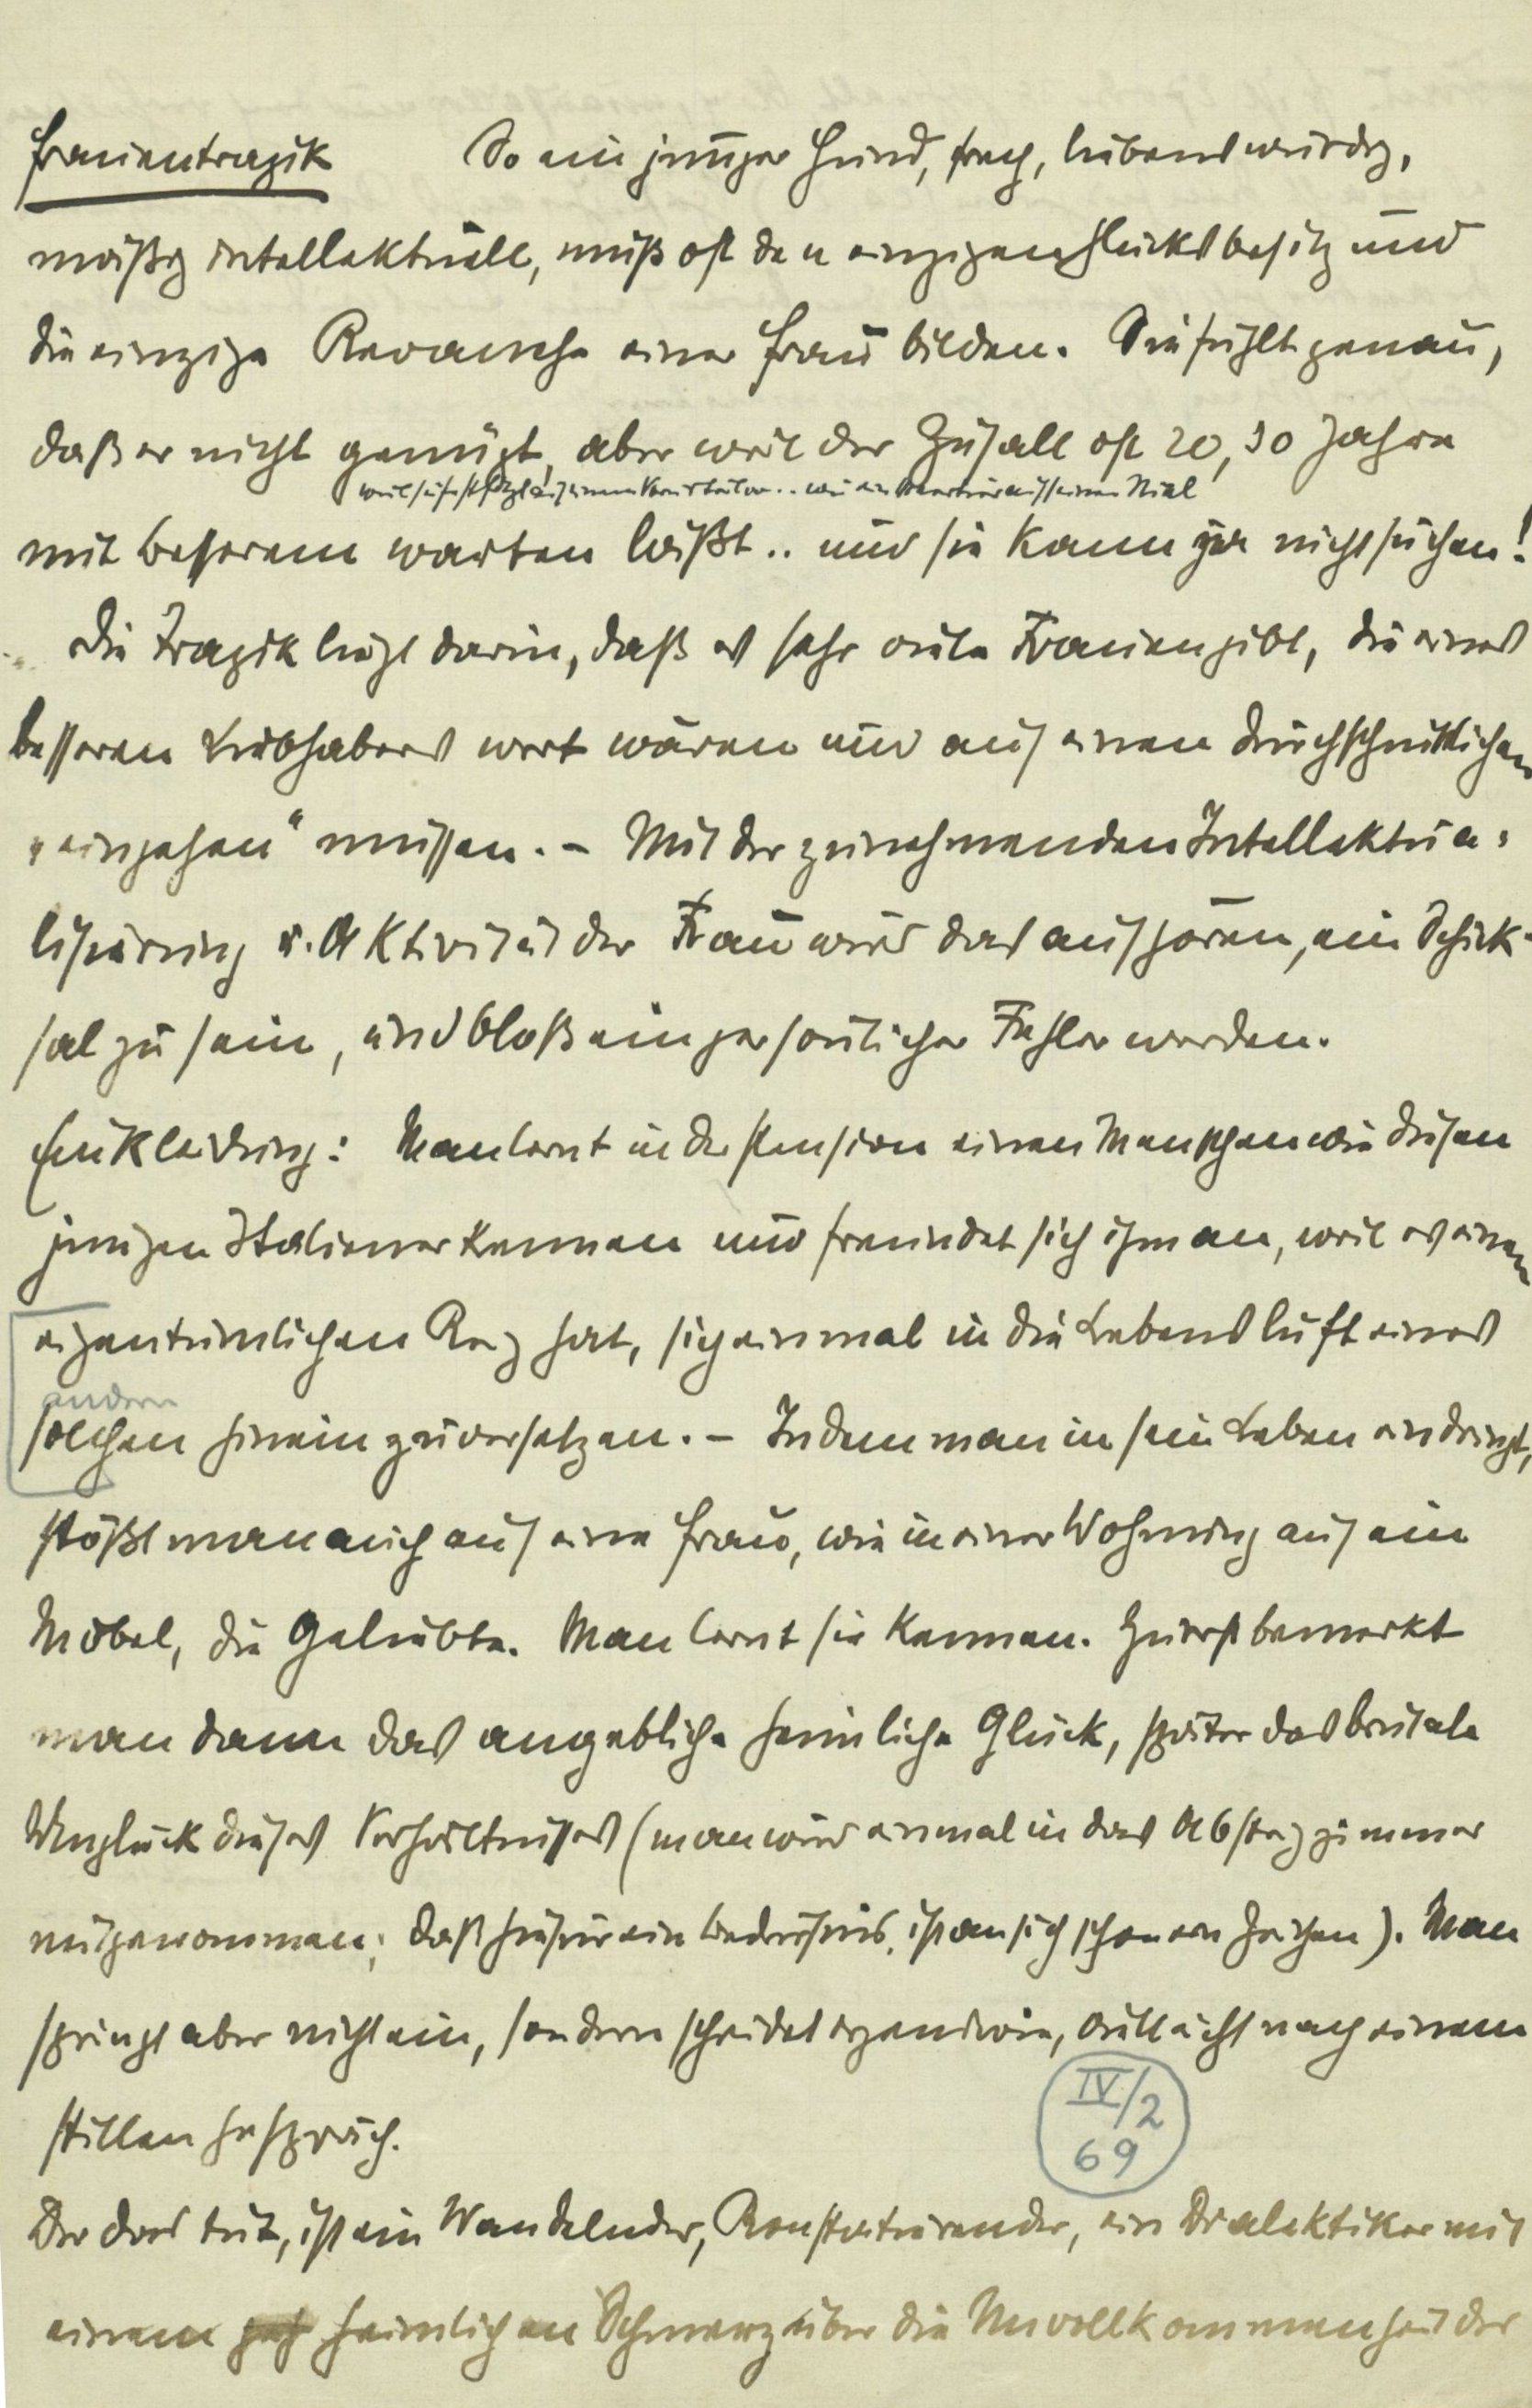 Frauentragik So ein junger Hund, frech, liebenswürdig,
mäßig intellektuell, muß oft den einzigen Glücksbesitz und
die einzige Revanche einer Frau bilden. Sie fühlt genau,
daß er nicht genügt, aber weil der Zufall oft 20, 30 Jahre
weil sie festsitzt auf einem
mit besserem warten läßt .. und sie kann ja nicht suchen!
Die Tragik liegt darin, daß es sehr viele Frauen gibt, die eines
besseren Liebhabers wert wären und auf einen durchschnittlichen
„eingehen“ müssen. – Mit der zunehmenden Intellektua-
lisierung u. Aktivität der Frau wird das aufhören, ein Schick-
sal zu sein, und bloß ein persönlicher Fehler werden.
Einkleidung: Man lernt in der Pension einen Menschen wie diesen
jungen Italiener kennen und freundet sich ihm an, weil es einen
eigentümlichen Reiz hat, sich einmal in die Lebensluft eines
andern
solchen hineinzuversetzen. – Indem man in sein Leben eindringt,
stößt man auch auf eine Frau, wie in einer Wohnung auf ein
Möbel, die Geliebte. Man lernt sie kennen. Zuerst bemerkt
man dann das angebliche heimliche Glück, später das brutale
Unglück dieses Verhältnisses (man wird einmal in das Absteigzimmer
mitgenommen; daß hiefür ein Bedürfnis, ist an sich schon ein Zeichen). Man
springt aber nicht ein, sondern scheidet irgendwie, vielleicht nach einem
stillen Gespräch.
IV/2
69
Der das tut, ist ein Wandelnder, Konstatierender, ein Dialektiker mit
einem heimlichen Schmerz über die Unvollkommenheit der